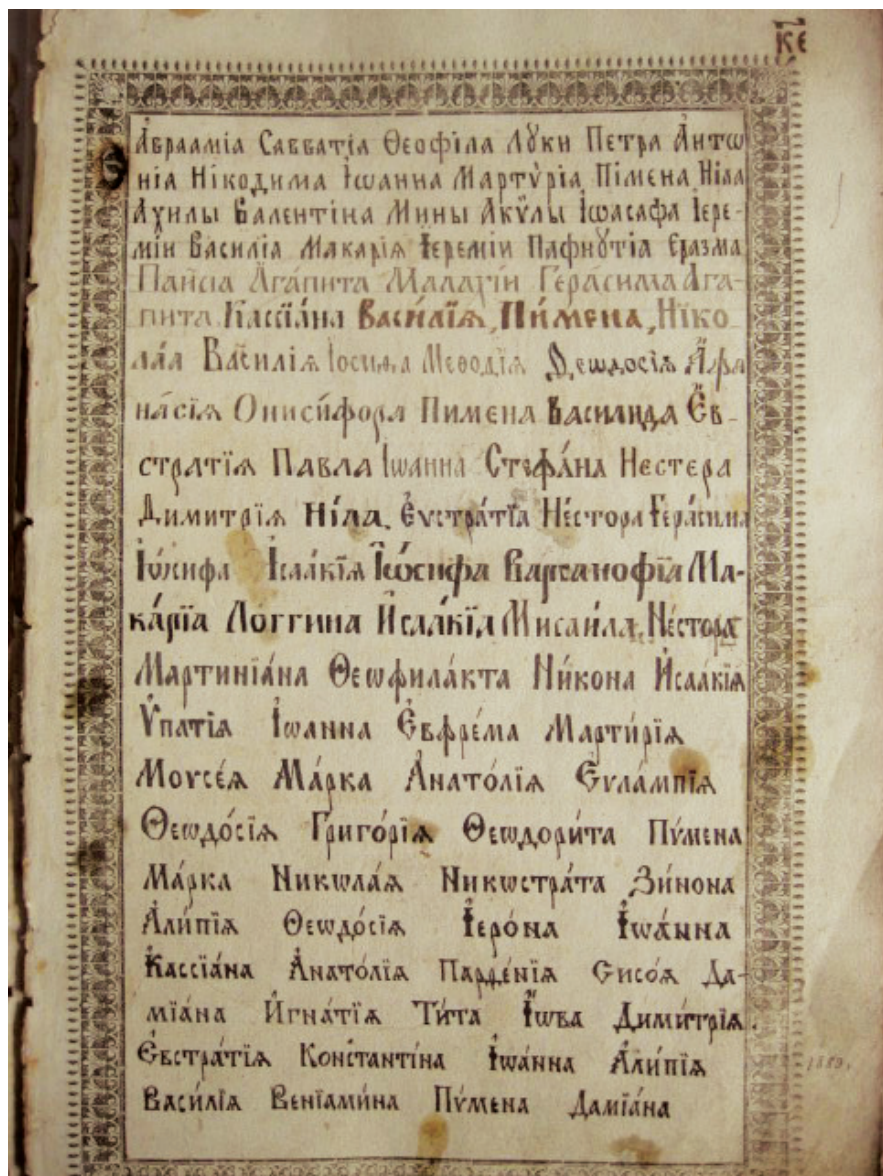 к҃е
Авраамїа Савватїа Ѳеофїла Лꙋки Петра Антѡ
нїа Нїкодима Іѡанна Мартѷрїа Пїмена Нїла
Ахилы Валентїна Мины Акѷлы Іѡасафа Іере-
мїи Василїа Макарїя Іеремїи Пафнꙋтїа Еразма
Паисїа Агапита Малахїи Герасима Ага-
пита Кассїана Васи́лїя, Пи́мена, Нїко
ла́а Василїя Іосифа Меѳодїя Ѳеѡдосїя Аѳа
на́сїя Ониси́фора Пимена Василида Єв-
стратїя Павла Іѡанна Стефа́на Нестера
Димитрїя Ни́ла, Єѵстра́тїа Не́стора Гера́сима
Іѡ́сифа Ісаа́кїя Іѡ́сифа Варсанофїа Ма-
ка́рїа Логгина Исаа́кїа Мисаи́ла, Не́стора
Мартинїа́на Ѳеѡфила́кта Ни́кона Исаа́кїя
Ѵ҆патїя Іѡанна Євфре́ма Марти́рїя
Моѵсе́я Ма́рка Анато́лїя Єѵла́мпїя
Ѳеѡдо́сїя Григо́рїя Ѳеѡдори́та Пѵ́мена
Ма́рка Никѡла́я Никѡстра́та Зи́нона
Али́пїя Ѳеѡдо́сїя Іеро́на Іѡа́нна
Кассїа́на Анато́лїя Парѳе́нїя Сисо́я Да-
мїа́на Игна́тїя Ти́та Іѡва Дими́трїя
Євстра́тїя Константі́на Іѡа́нна Али́пїя
Васи́лїя Венїами́на Пѵ́мена Дамїа́на
1889.